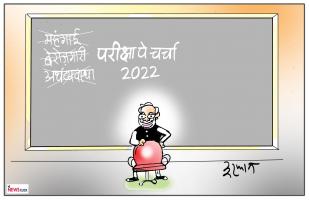 महंगाई
बेरोजगारी परीक्षा पे चर्चा
अर्थव्यवस्था 2022
इरफान
NEWSCLICK